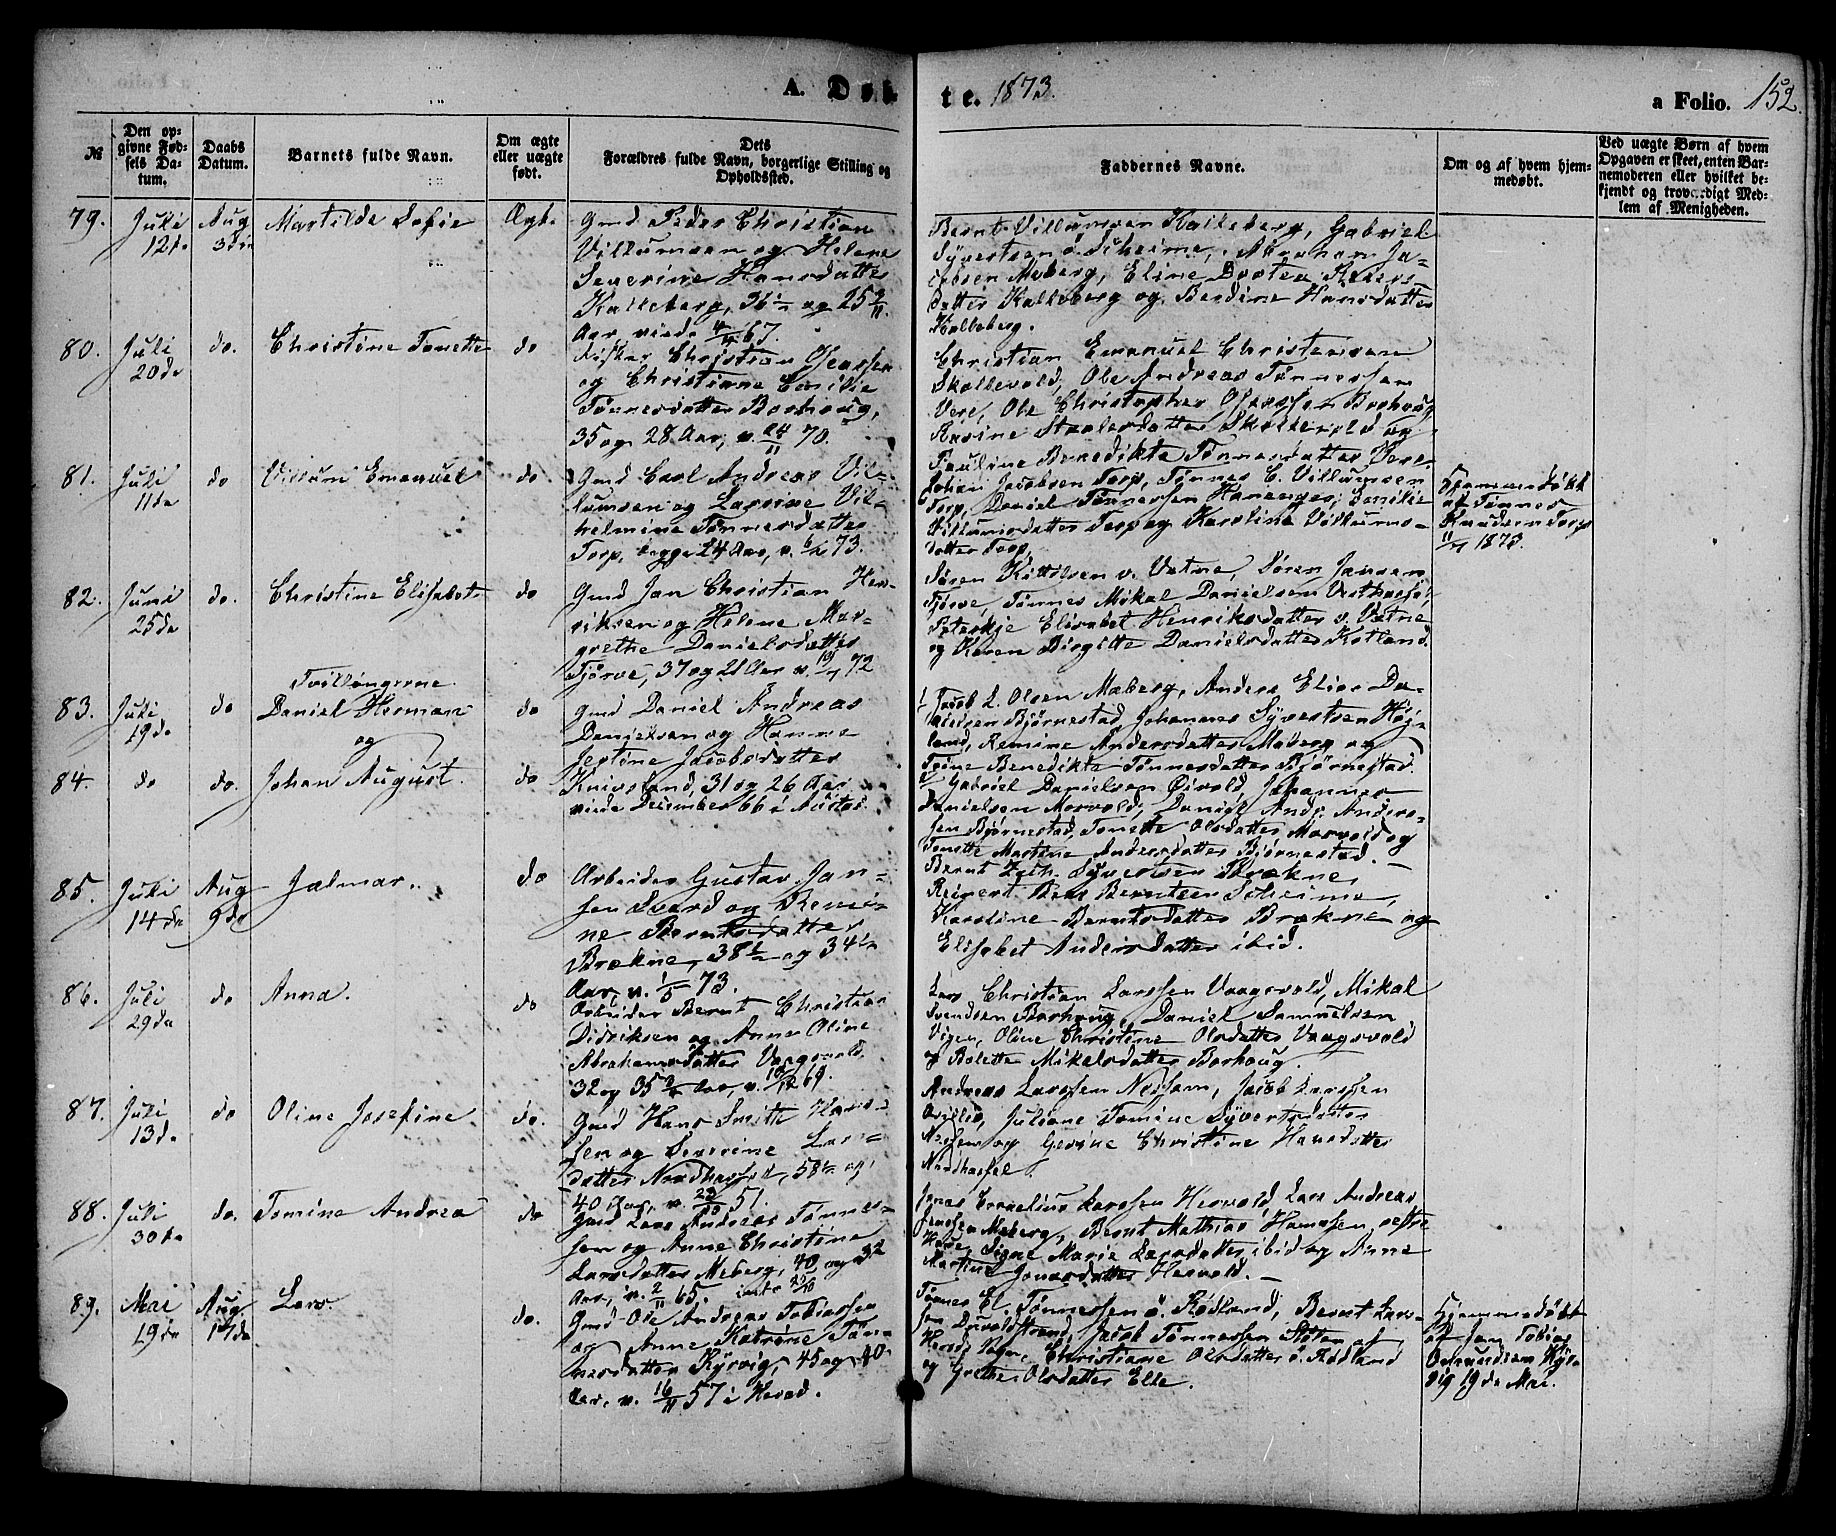 A. Døbte. 1873. a Folio. 152.
№
Den opgivne Fødsels Datum.
Daabs Datum.
Barnets fulde Navn.
Om ægte eller uægte født.
Dets Forældres fulde Navn, borgerlige Stilling og Opholdssted.
Faddernes Navne.
Om og af hvem hjemmedøbt.
Ved uægte Børn af hvem Opgaven er skeet, enten Barnemoderen eller hvilket bekjendt og troværdigt Medlem af Menigheden.
79. Juli 12te Aug 3die Martilde Sofie Ægt.
Gmd Peder Christian
Villumsen og Helene
Severine Hansdatter
Kalleberg, 36 og 25
Aar, viede 67.
Bernt Villumsen Kalleberg, Gabriel
Syvertsen ø. Skeime, Abraham Ja-
cobsen Meberg, Eline Dortea Reiers-
datter Kalleberg og Berdine Hansdatter
Kalleberg.
80. Juli 20de do. Christine Tonette do
Fisker Christian Osenssen
og Christiane Emilie
Tønnesdatter Borhoug,
35 og 28 Aar, v. 24/11 70.
Christian Emanuel Christensen
Skollevold, Ole Andreas Tønnessen
Vere, Ole Christopher Osenssen Borhoug
Rasine Staalesdatter Skollevold og
Pauline Benedikte Tønnesdatter Vere.
81. Juli 11te do Villum Emanuel do
Gmd Carl Andreas Vil-
lumsen og Lavine Vil-
helmine Tønnesdatter
Torp, begge 24 Aar, v. 73.
Johan Jacobsen Torp, Tønnes C. Villumsen
Torp, Daniel Tønnessen Hananger, Emilie
Villumsdatter Torp og Karoline Villums-
datter Torp.
Hjemmedøbt
af Tønnes
Knudsen Torp
11/7 1873.
82. Juni 25de do. Christine Elisabet do
Gmd Jan Christian Hen-
riksen og Helene Mar-
grethe Danielsdatter
Tjørve, 37 og 21 Aar v. 72
Søren Kittilsen v. Vatne, Søren Jansen
Tjørve, Tønnes Mikal Danielsen Vesthassel,
Elisabet Henriksdatter v. Vatne
og Karen Birgitte Danielsdatter Kotland.
Tvillingerne
83. Juli 19de do Daniel Herman do
og
Gmd Daniel Andreas
Danielsen og Hanne
Jestine Jacobsdatter
Jacob L. Olsen Meberg, Anders Elias Da-
nielsen Bjørnestad, Johannes Syvertsen Høi-
land, Remine Andersdatter Meberg og
Trine Benedikte Tønnesdatter Bjørnestad.
84. do do. Johan August. do
Knivsland, 31 og 26 Aar,
viede December 66 i Austad.
Gabriel Danielsen Øivold, Johannes
Danielsen Morvold, Daniel Andr. Anders-
sen Bjørnestad, Tonette Olsdatter Morvold og
Tonette Martine Andersdatter Bjørnestad.
85. Juli 14de Aug 9de Jalmar. do
Arbeider Gustav Jan-
sen Svard og Remi-
ne Berntsdatter
Brækne, 38 1/2 og 34
Aar, v. 1/5 73.
Bernt Zeth. Syvertsen Brækne,
Reinert Berntsen Skeime,
Karoline Berntsdatter Brækne og
Elisabet Andersdatter ibid.
86. Juli 29de do Anna. do
Arbeider Bernt Christian
Didriksen og Anne Oline
Abrahamsdatter Vaagsvold
32 og 35 Aar, v. 69.
Lars Christian Larssen Vaagsvold, Mikal
Svendsen Borhaug, Daniel Samuelsen
Vigen, Oline Christine Olsdatter Vaagsvold
og Bolette Mikalsdatter Borhaug.
87. Juli 13de do Oline Josefine do.
Gmd Hans Smith Hans-
sen og Severine Lars-
datter Nordhassel, 58 og
40 Aar, v. 51.
Andreas Larssen Nesheim, Jacob Larssen
Juliane Tomine Syvertsdatter
og Gesine Christine Hansdatter
Nordhassel.
88. Juli 30te do. Tomine Andrea do
Gmd Lars Andreas Tønnes-
sen og Anne Christine
Larsdatter Meberg, 40 og 32
Aar, v. 2/11 65.
Jonas Cornelius Larssen Hesvold, Lars Andreas
Jenssen Meberg, Bernt Mathias Hanssen, vestre
Signe Marie Larsdatter ibid og Anne
Martine Jonasdatter Hesvold.
89. Mai 19de Aug 17de Lars. do.
Gmd Ole Andreas Tobiassen
og Anne Katrine Tøn-
nesdatter Kjørvig, 45 og 40
Aar, v. 16/11 57 i Hered.
Tønnes El. Tønnessen ø. Rødland, Bernt Lars-
sen Jacob Tønnessen
Christiane Olsdatter ø. Rødland
og Grethe Olsdatter Elle.
Hjemmedøbt
af Jan Tobias
Omundsen Kjør-
vig 19de Mai.